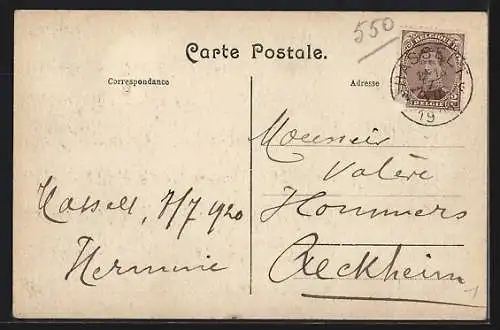 550
Carte Postale.
Correspondance
Adresse
BELGIQUE
BELGIË
HASSELT
19
Monsieur
Valère
Hommers
Reckheim
Hasselt, 8/7 1920
Hermine